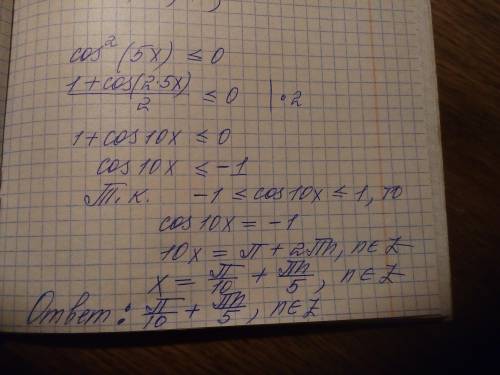 cos²(5x) ≤ 0
(1+cos(2·5x))/2 ≤ 0 | ·2
1+cos10x ≤ 0
cos10x ≤ -1
Т.к. -1 ≤ cos10x ≤ 1, то
cos10x = -1
10x = π + 2πn, n∈Z
x = π/10 + πn/5, n∈Z
Ответ: π/10 + πn/5, n∈Z